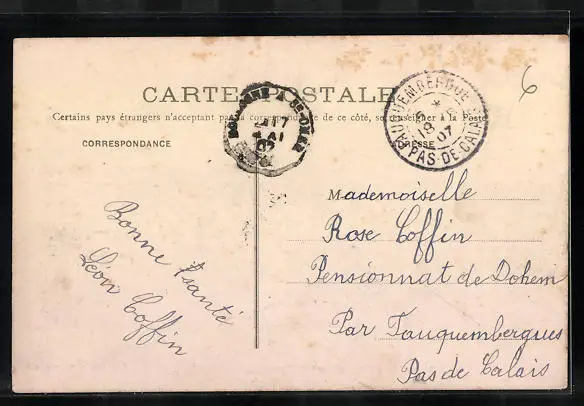 CARTE POSTALE
Certains pays étrangers n'acceptant pas la correspondance de ce côté, se renseigner à la Poste
CORRESPONDANCE
ADRESSE
6
BOULOGNE A ST-OMER
07
FAUQUEMBERGUES
07
PAS-DE-CALAIS
Bonne santé
Léon Coffin
Mademoiselle
Rose Coffin
Pensionnat de Dohem
Par Fauquembergues
Pas de Calais